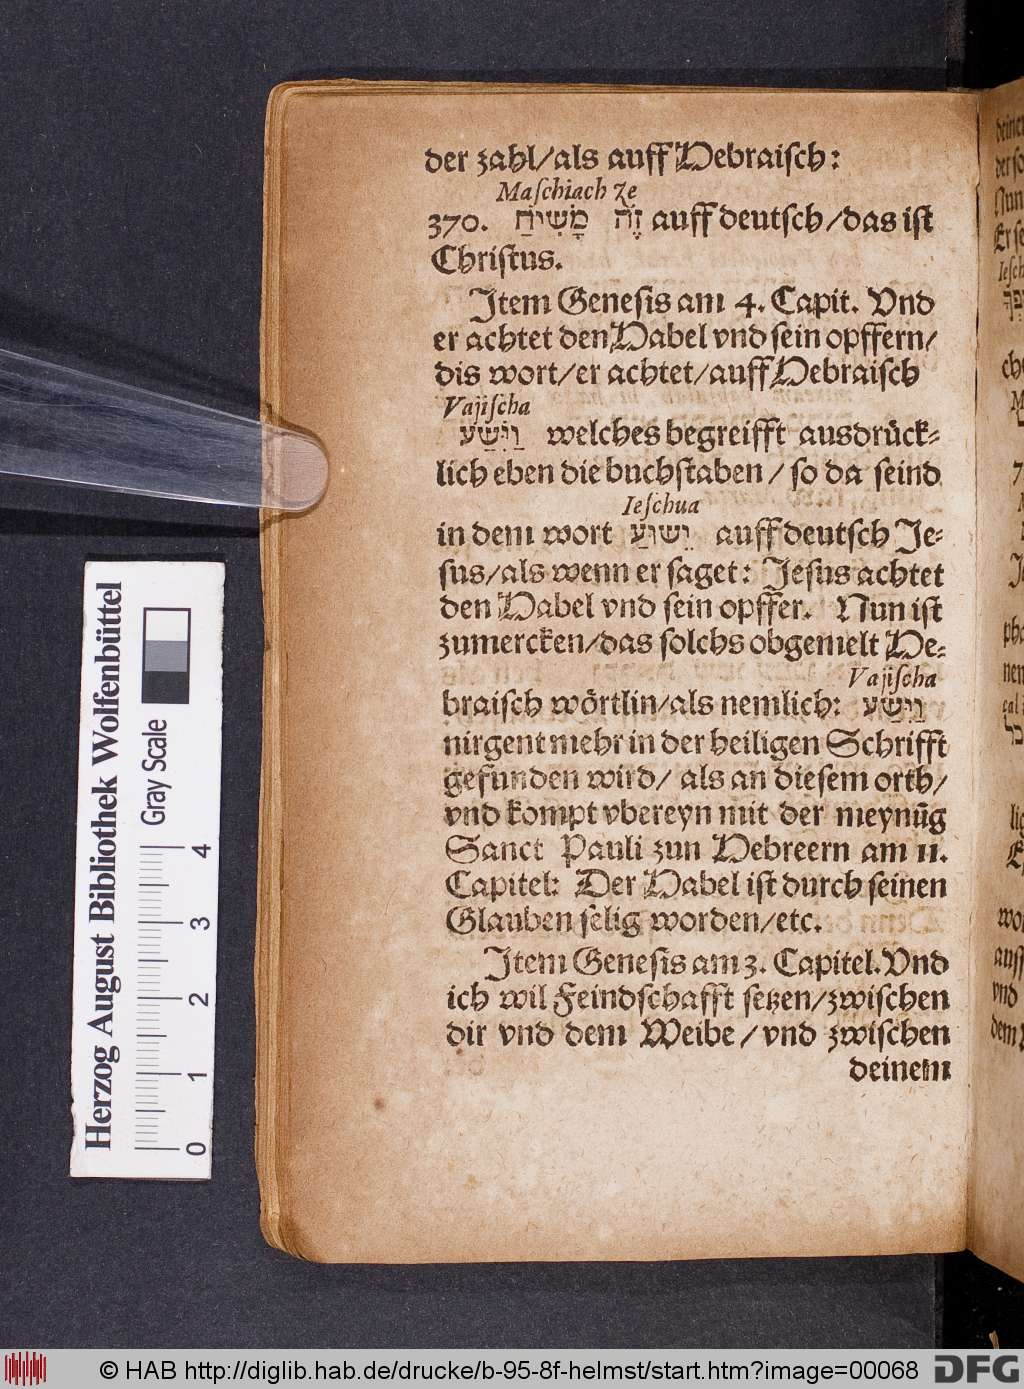 der zahl/als auff Hebraisch:
Maschiach Ze
370. זֶה מָשִׁיחַ auff deutsch/das ist
Christus.
Item Genesis am 4. Capit. Vnd
er achtet den Habel vnd sein opffern/
dis wort/er achtet/auff Hebraisch
Vajischa
וַיִּשַׁע welches begreifft ausdrück-
lich eben die buchstaben / so da seind
Ieschua
in dem wort יֵשׁוּעַ auff deutsch Je-
sus/als wenn er saget: Jesus achtet
den Habel vnd sein opffer. Nun ist
zumercken/das solchs obgemelt He-
Vajischa
braisch wörtlin/als nemlich: וַיִּשַׁע
nirgent mehr in der heiligen Schrifft
gefunden wird/ als an diesem orth/
vnd kompt vbereyn mit der meynūg
Sanct Pauli zun Hebreern am 11.
Capitel: Der Habel ist durch seinen
Glauben selig worden/etc.
Item Genesis am 3. Capitel. Vnd
ich wil Feindschafft setzen/zwischen
dir vnd dem Weibe/vnd zwischen
deinem
Herzog August Bibliothek Wolfenbüttel
Gray Scale
0 1 2 3 4
© HAB http://diglib.hab.de/drucke/b-95-8f-helmst/start.htm?image=00068
DFG